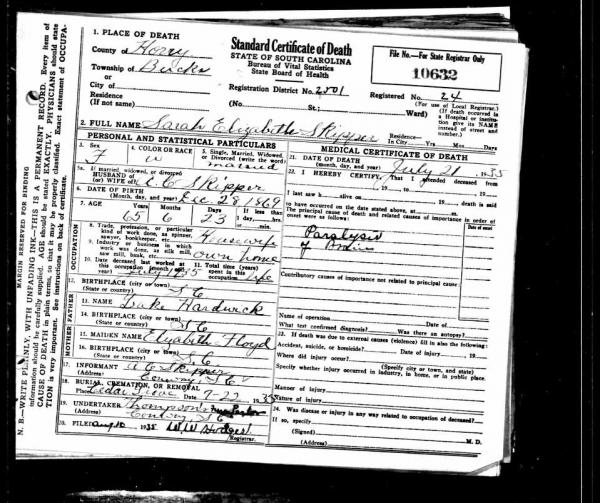 1. PLACE OF DEATH
County of Horry
Township of Bucks
or
City of
Residence
(If not same)
Standard Certificate of Death
STATE OF SOUTH CAROLINA
Bureau of Vital Statistics
State Board of Health
Registration District No. 2501
(No. St.; Ward)
File No.—For State Registrar Only
10632
Registered No. 24
(For use of Local Registrar.)
(If death occurred in a Hospital or institution give its NAME instead of street and number.)
2. FULL NAME Sarah Elizabeth Skipper
Residence—In City Yrs. Mos. Days
PERSONAL AND STATISTICAL PARTICULARS
3. Sex F
4. COLOR OR RACE W
5. Single, Married, Widowed, or Divorced (write the word)
5a. If married, widowed, or divorced
HUSBAND of
(or) WIFE of Skipper
6. DATE OF BIRTH Dec 28 1869
(Month, day, and year)
7. AGE Years 65 Months 6 Days 23 If less than
8. Trade, profession, or particular kind of work done, as spinner, sawyer, bookkeeper, etc. Housewife
9. Industry or business in which work was done, as silk mill, saw mill, bank, etc. own home
10. Date deceased last worked at this occupation (month and year)
11. Total time (years) spent in this occupation life
12. BIRTHPLACE (city or town) S C
(State or country)
13. NAME Luke Hardwick
14. BIRTHPLACE (city or town) S C
(State or country)
15. MAIDEN NAME Elizabeth Floyd
16. BIRTHPLACE (city or town) S C
(State or country)
17. INFORMANT Skipper
(Address) Conway S C
18. BURIAL, CREMATION, OR REMOVAL
Place Date 7-22 1935
19. UNDERTAKER Thompson
(Address) Conway, S C
20. FILED Aug 10 1935 W. W. Hodges
Registrar.
MEDICAL CERTIFICATE OF DEATH
21. DATE OF DEATH July 21, 1935
(Month, day, and year)
22. I HEREBY CERTIFY, That I attended deceased from
19 to 19
I last saw h alive on 19 death is said
to have occurred on the date stated above, at m.
The principal cause of death and related causes of importance in order of onset were as follows:
Date of onset
Paralysis
of
Contributory causes of importance not related to principal cause:
Name of operation Date of
What test confirmed diagnosis? Was there an autopsy?
23. If death was due to external causes (violence) fill in also the following:
Accident, suicide, or homicide? Date of injury 19
Where did injury occur?
(Specify city or town, and state)
Specify whether injury occurred in industry, in home, or in public place.
Manner of injury
Nature of injury
24. Was disease or injury in any way related to occupation of deceased?
If so, specify
(Signed) M. D.
(Address)
OCCUPATION
FATHER
MOTHER
MARGIN RESERVED FOR BINDING
N. B.—WRITE PLAINLY, WITH UNFADING INK—THIS IS A PERMANENT RECORD. Every item of
information should be carefully supplied. AGE should be stated EXACTLY. PHYSICIANS should state
CAUSE OF DEATH in plain terms, so that it may be properly classified. Exact statement of OCCUPA-
TION is very important. See instructions on back of certificate.